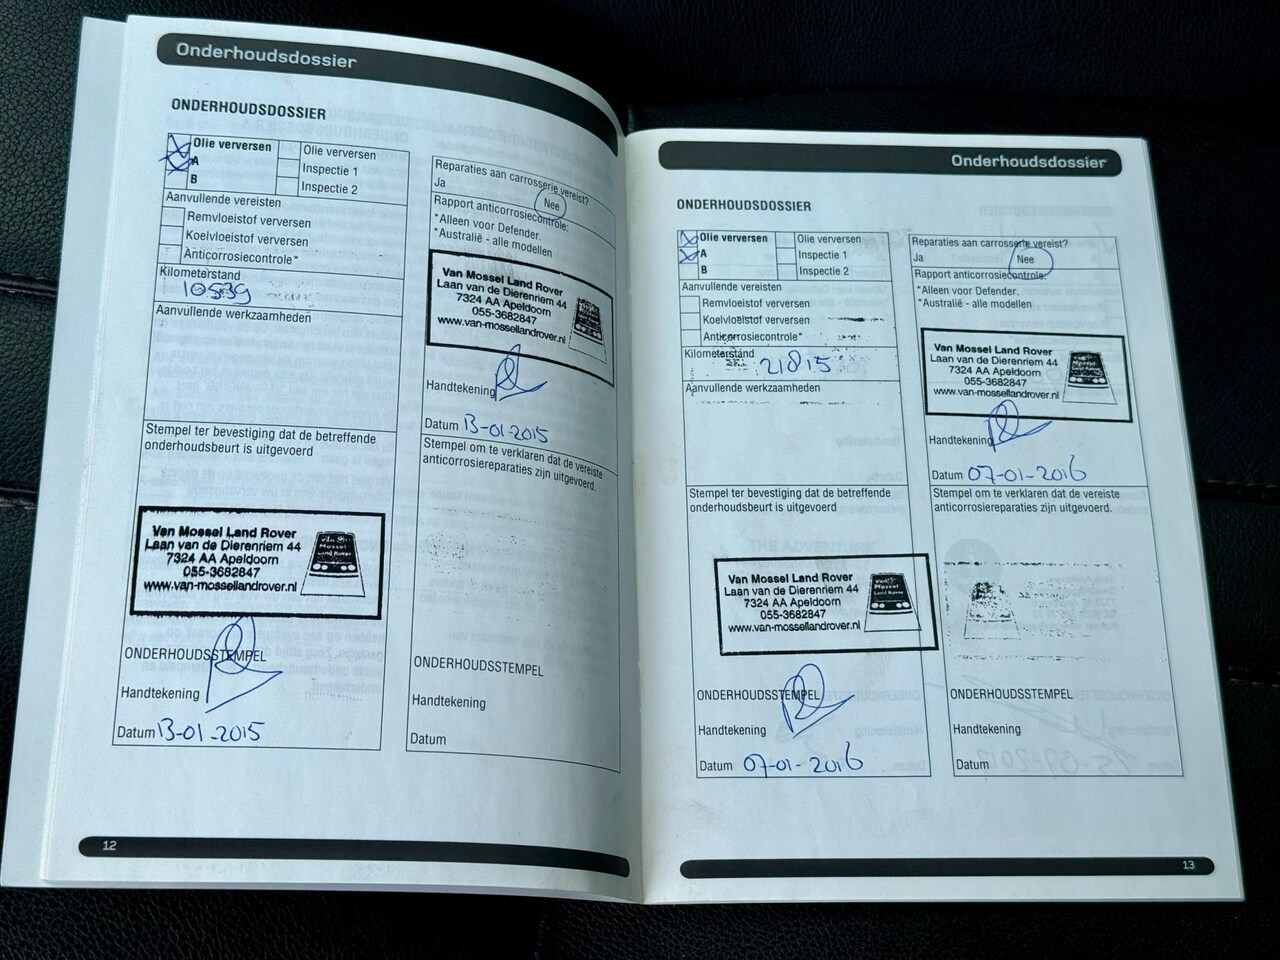 Onderhoudsdossier
ONDERHOUDSDOSSIER
Olie verversen
A
B
Olie verversen
Inspectie 1
Inspectie 2
Aanvullende vereisten
Remvloeistof verversen
Koelvloeistof verversen
Anticorrosiecontrole*
Kilometerstand
10539
Aanvullende werkzaamheden
Stempel ter bevestiging dat de betreffende
onderhoudsbeurt is uitgevoerd
Van Mossel Land Rover
Laan van de Dierenriem 44
7324 AA Apeldoorn
055-3682847
www.van-mossellandrover.nl
Van
Mossel
Land Rover
ONDERHOUDSSTEMPEL
Handtekening
Datum 13-01-2015
Reparaties aan carrosserie vereist?
Ja Nee
Rapport anticorrosiecontrole:
*Alleen voor Defender.
*Australië - alle modellen
Van Mossel Land Rover
Laan van de Dierenriem 44
7324 AA Apeldoorn
055-3682847
www.van-mossellandrover.nl
Handtekening
Datum 13-01-2015
Stempel om te verklaren dat de vereiste
anticorrosiereparaties zijn uitgevoerd.
ONDERHOUDSSTEMPEL
Handtekening
Datum
12
Onderhoudsdossier
ONDERHOUDSDOSSIER
Olie verversen
A
B
Olie verversen
Inspectie 1
Inspectie 2
Aanvullende vereisten
Remvloeistof verversen
Koelvloeistof verversen
Anticorrosiecontrole*
Kilometerstand
21815
Aanvullende werkzaamheden
Stempel ter bevestiging dat de betreffende
onderhoudsbeurt is uitgevoerd
Van Mossel Land Rover
Laan van de Dierenriem 44
7324 AA Apeldoorn
055-3682847
www.van-mossellandrover.nl
Van
Mossel
Land Rover
ONDERHOUDSSTEMPEL
Handtekening
Datum 07-01-2016
Reparaties aan carrosserie vereist?
Ja Nee
Rapport anticorrosiecontrole:
*Alleen voor Defender.
*Australië - alle modellen
Van Mossel Land Rover
Laan van de Dierenriem 44
7324 AA Apeldoorn
055-3682847
www.van-mossellandrover.nl
Handtekening
Datum 07-01-2016
Stempel om te verklaren dat de vereiste
anticorrosiereparaties zijn uitgevoerd.
ONDERHOUDSSTEMPEL
Handtekening
Datum
13